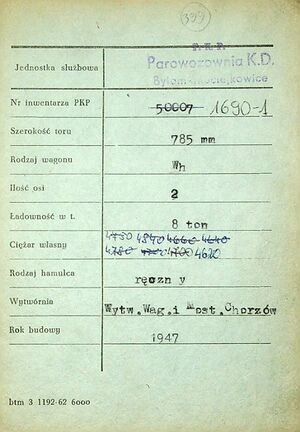 399
P.K.P.
Jednostka służbowa Parowozownia K.D.
Nr inwentarza PKP 50007 1690-1
Szerokość toru 785 mm
Rodzaj wagonu Wh
Ilość osi 2
Ładowność w t. 8 ton
4750 4840 4660 4640
Ciężar własny 4780 4700 4620
Rodzaj hamulca ręczny
Wytwórnia Wytw.Wag.i Most.Chorzów
Rok budowy 1947
btm 3 1192-62 6000